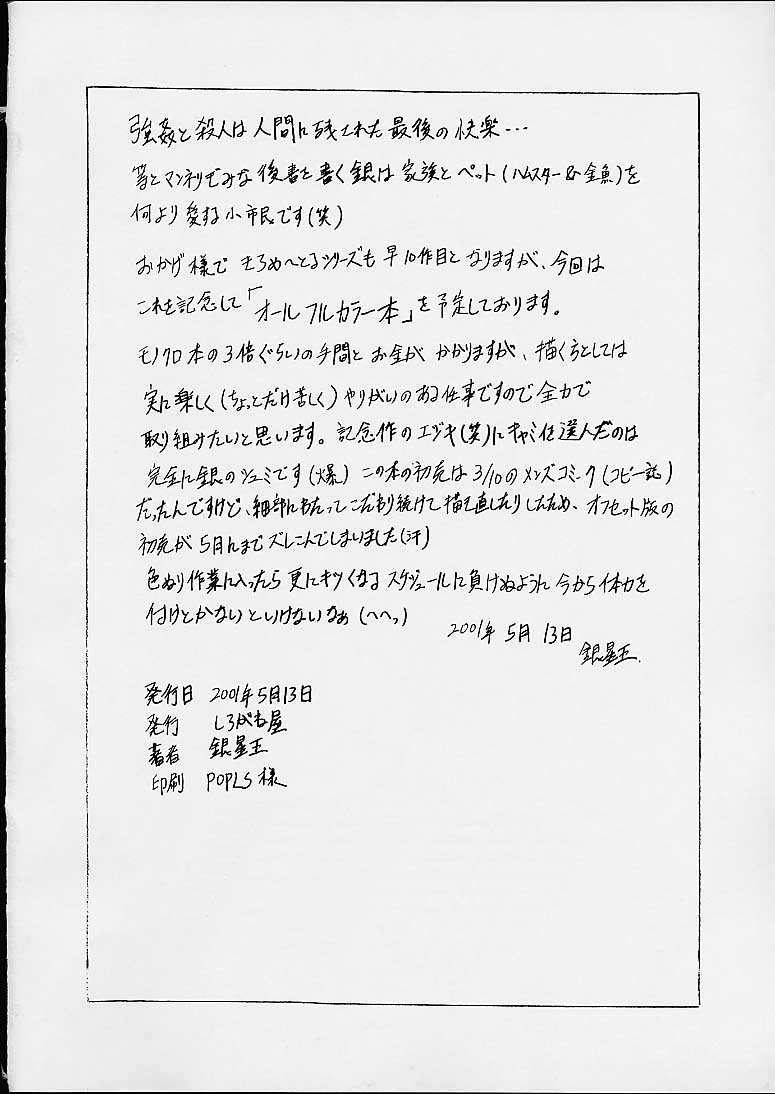 強姦と殺人は人間に残された最後の快楽…
等とマンネリぎみな後書を書く銀は家族とペット(ハムスター&金魚)を
何より愛する小市民です(笑)
おかげ様でまろめへとるシリーズも早10作目となりますが、今回は
これを記念して「オールフルカラー本」を予定しております。
モノクロ本の3倍ぐらいの手間とお金がかかりますが、描く方としては
実に楽しく(ちょっとだけ苦しく)やりがいのある仕事ですので全力で
取り組みたいと思います。記念作のエジキ(笑)にキャミィを選んだのは
完全に銀のシュミです(爆) この本の初売は3/10のメンズコミック(コピー誌)
だったんですけど、細部にわたってこだわり続けて描き直したりしたため、オフセット版の
初売が5月にまでズレこんでしまいました(汗)
色ぬり作業に入ったら更にキツくなるスケジュールに負けぬように今から体力を
付けとかないといけないなぁ(へへっ)
2001年5月13日
銀星王
発行日 2001年5月13日
発行 しろがね屋
著者 銀星王
印刷 POPLS様